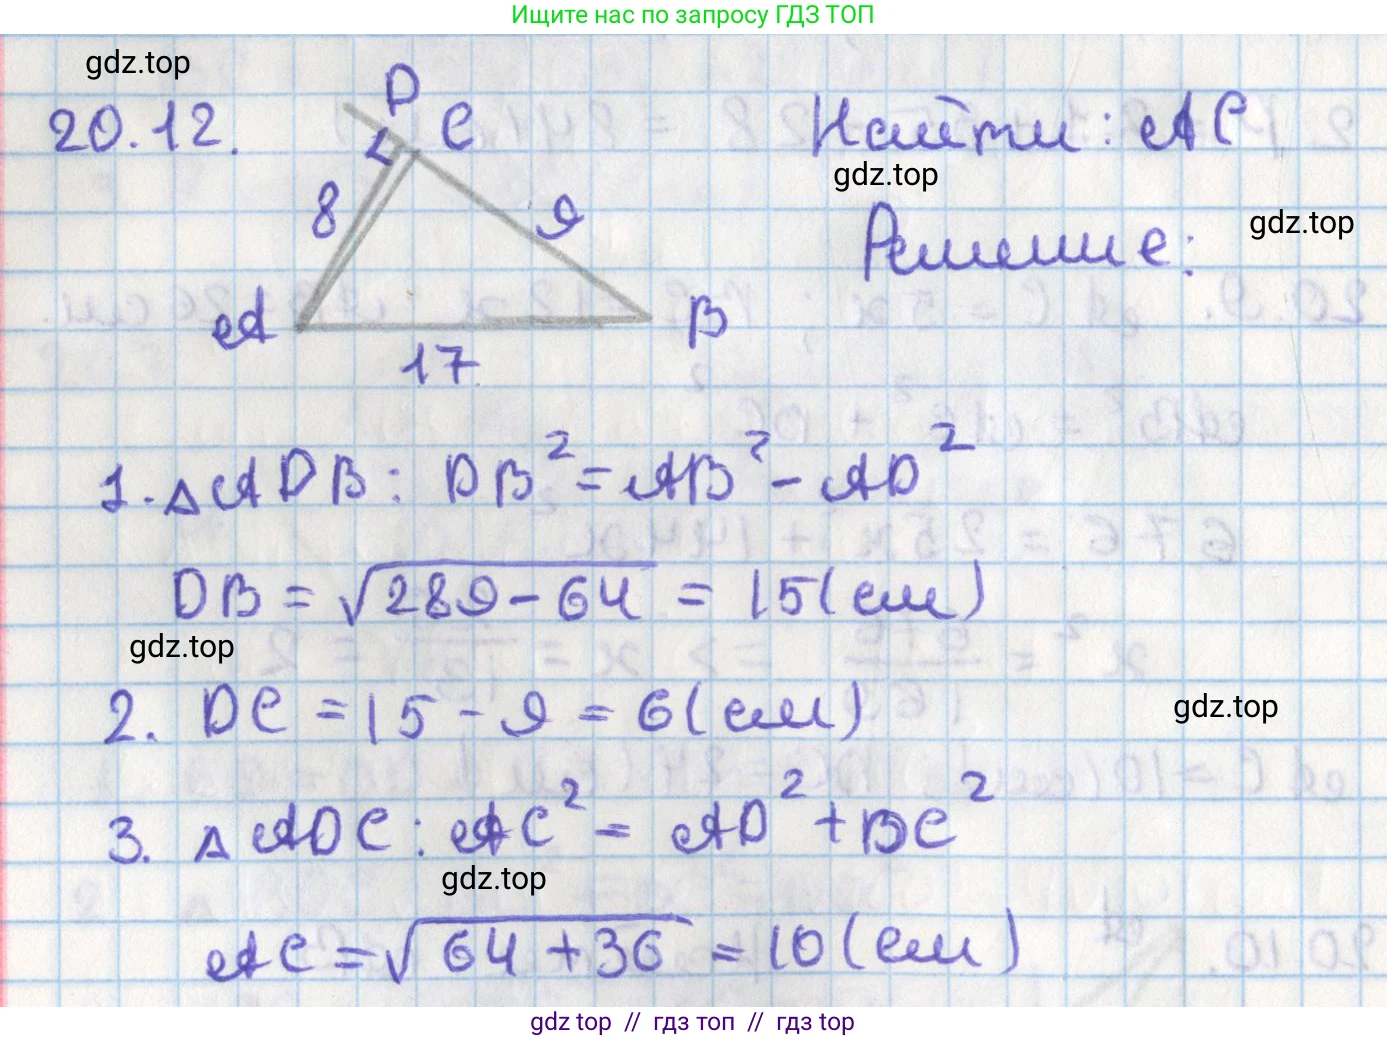 Ищите нас по запросу ГДЗ ТОП
gdz.top
20.12.
D
C
Найти: AC
gdz.top
8
9
gdz.top
Решение:
A
B
17
1. △ADB: DB² = AB² - AD²
DB = √289-64 = 15(см)
gdz.top
2. DC = 15 - 9 = 6(см)
gdz.top
3. △ADC: AC² = AD² + DC²
gdz.top
AC = √64+36 = 10(см)
gdz top // гдз топ // gdz top